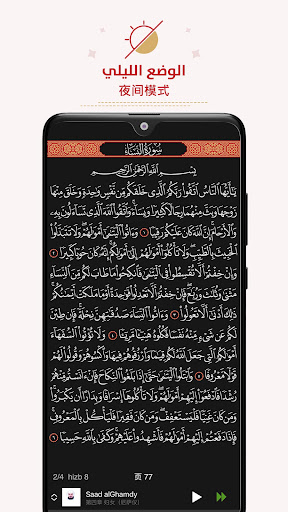 الوضع الليلي
夜间模式
سُورَةُ النِّسَاءِ
بِسْمِ اللَّهِ الرَّحْمَٰنِ الرَّحِيمِ
يَٰٓأَيُّهَا ٱلنَّاسُ ٱتَّقُوا۟ رَبَّكُمُ ٱلَّذِى خَلَقَكُم مِّن نَّفْسٍ وَٰحِدَةٍ وَخَلَقَ مِنْهَا
زَوْجَهَا وَبَثَّ مِنْهُمَا رِجَالًا كَثِيرًا وَنِسَآءً وَٱتَّقُوا۟ ٱللَّهَ ٱلَّذِى تَسَآءَلُونَ بِهِۦ
وَٱلْأَرْحَامَ إِنَّ ٱللَّهَ كَانَ عَلَيْكُمْ رَقِيبًا ١ وَءَاتُوا۟ ٱلْيَتَٰمَىٰٓ أَمْوَٰلَهُمْ وَلَا تَتَبَدَّلُوا۟
ٱلْخَبِيثَ بِٱلطَّيِّبِ وَلَا تَأْكُلُوٓا۟ أَمْوَٰلَهُمْ إِلَىٰٓ أَمْوَٰلِكُمْ إِنَّهُۥ كَانَ حُوبًا كَبِيرًا ٢
وَإِنْ خِفْتُمْ أَلَّا تُقْسِطُوا۟ فِى ٱلْيَتَٰمَىٰ فَٱنكِحُوا۟ مَا طَابَ لَكُم مِّنَ ٱلنِّسَآءِ
مَثْنَىٰ وَثُلَٰثَ وَرُبَٰعَ فَإِنْ خِفْتُمْ أَلَّا تَعْدِلُوا۟ فَوَٰحِدَةً أَوْ مَا مَلَكَتْ
أَيْمَٰنُكُمْ ذَٰلِكَ أَدْنَىٰٓ أَلَّا تَعُولُوا۟ ٣ وَءَاتُوا۟ ٱلنِّسَآءَ صَدُقَٰتِهِنَّ نِحْلَةً فَإِن طِبْنَ
لَكُمْ عَن شَىْءٍ مِّنْهُ نَفْسًا فَكُلُوهُ هَنِيٓـًٔا مَّرِيٓـًٔا ٤ وَلَا تُؤْتُوا۟ ٱلسُّفَهَآءَ
أَمْوَٰلَكُمُ ٱلَّتِى جَعَلَ ٱللَّهُ لَكُمْ قِيَٰمًا وَٱرْزُقُوهُمْ فِيهَا وَٱكْسُوهُمْ وَقُولُوا۟ لَهُمْ
قَوْلًا مَّعْرُوفًا ٥ وَٱبْتَلُوا۟ ٱلْيَتَٰمَىٰ حَتَّىٰٓ إِذَا بَلَغُوا۟ ٱلنِّكَاحَ فَإِنْ ءَانَسْتُم
مِّنْهُمْ رُشْدًا فَٱدْفَعُوٓا۟ إِلَيْهِمْ أَمْوَٰلَهُمْ وَلَا تَأْكُلُوهَآ إِسْرَافًا وَبِدَارًا أَن يَكْبَرُوا۟
وَمَن كَانَ غَنِيًّا فَلْيَسْتَعْفِفْ وَمَن كَانَ فَقِيرًا فَلْيَأْكُلْ بِٱلْمَعْرُوفِ
فَإِذَا دَفَعْتُمْ إِلَيْهِمْ أَمْوَٰلَهُمْ فَأَشْهِدُوا۟ عَلَيْهِمْ وَكَفَىٰ بِٱللَّهِ حَسِيبًا ٦
2/4 hizb 8 页 77
Saad alGhamdy
第四章 妇女（尼萨仪）